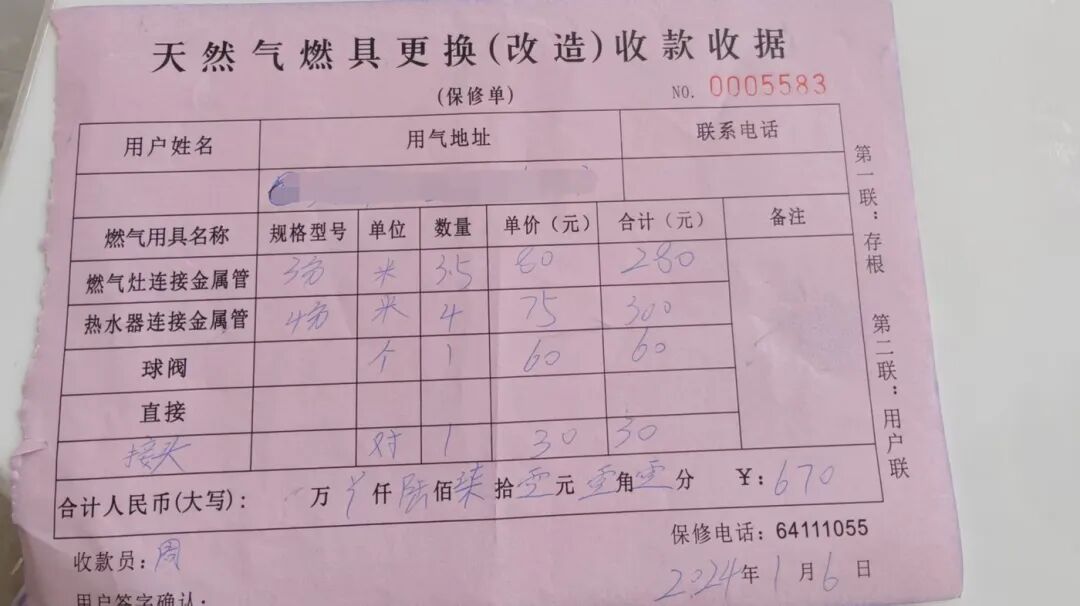 天然气燃具更换(改造)收款收据
(保修单)
NO. 0005583
用户姓名 用气地址 联系电话
燃气用具名称 规格型号 单位 数量 单价(元) 合计(元) 备注
燃气灶连接金属管 3分 米 3.5 80 280
热水器连接金属管 4分 米 4 75 300
球阀 个 1 60 60
直接
接头 对 1 30 30
合计人民币(大写): 万 仟 陆 佰 柒 拾 零 元 零 角 零 分 ¥: 670
保修电话: 64111055
收款员: 周
2024年1月6日
用户签字确认:
第一联:存根 第二联:用户联